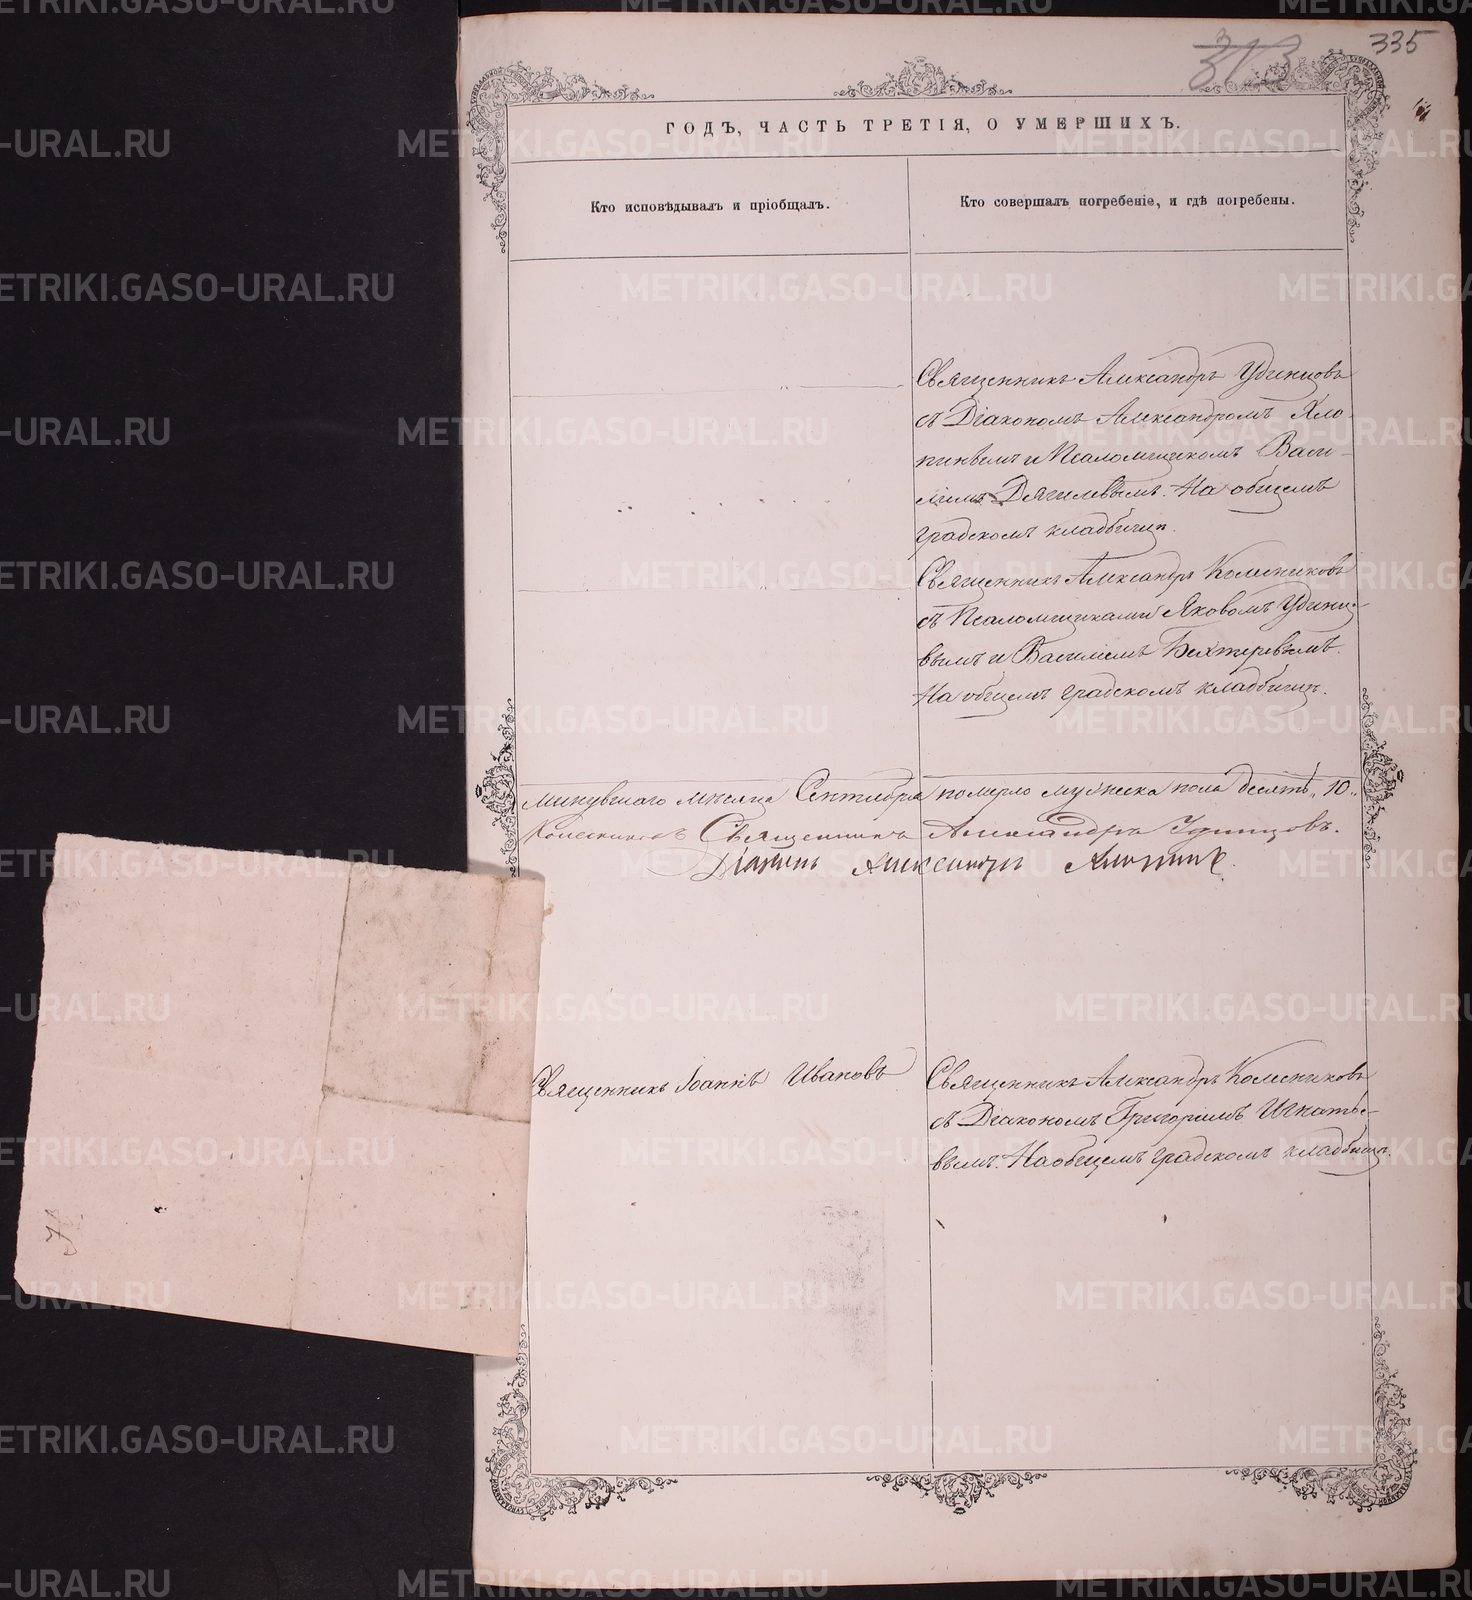 313 335
ГОДЪ, ЧАСТЬ ТРЕТІЯ, О УМЕРШИХЪ.
Кто исповѣдывалъ и пріобщалъ.
Кто совершалъ погребеніе, и гдѣ погребены.
Священникъ Александръ Удинцовъ
съ Діакономъ Александромъ Хло-
пинымъ и Псаломщикомъ Васи-
ліемъ Дягилевымъ. На общемъ
градскомъ кладбищѣ.
Священникъ Александръ Колесниковъ
съ Псаломщиками Яковомъ Удинцо-
вымъ и Василіемъ Бехтеревымъ.
На общемъ градскомъ кладбищѣ.
минувшаго мѣсяца Сентября померло мужеска пола десять „10„
Колесниковъ Священникъ Александръ Удинцовъ.
Діаконъ Александръ Хлопинъ.
Священникъ Іоаннъ Ивановъ
Священникъ Александръ Колесниковъ
съ Діакономъ Григоріемъ Игнатье-
вымъ. На общемъ градскомъ кладбищѣ.
METRIKI.GASO-URAL.RU